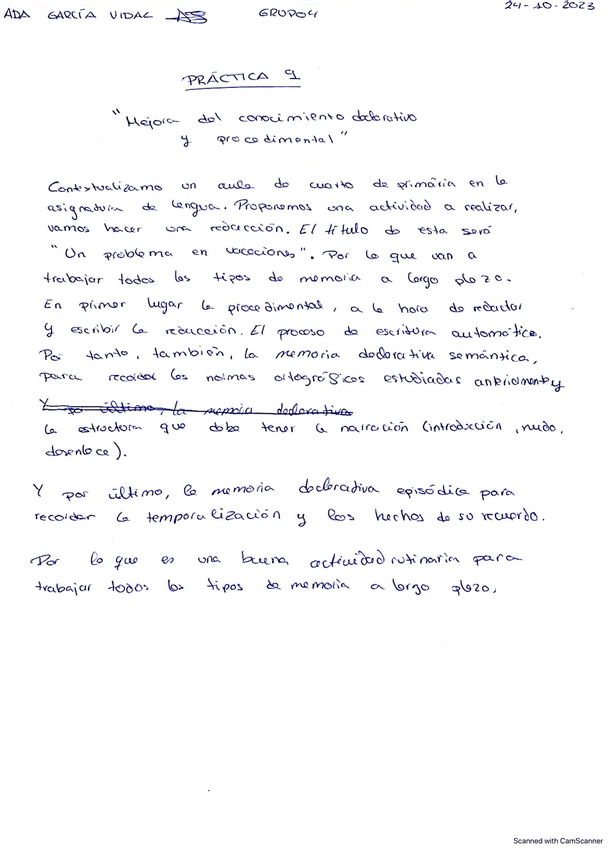 ADA GARCÍA VIDAL GRUPO4 24-10-2023
PRÁCTICA 9
"Mejora del conocimiento declarativo
y procedimental"
Contextualizamo un aula de cuarto de primària en la
asignatura de lengua. Proponemos una actividad a realizar,
vamos hacer una redacción. El título de esta será
"Un problema en vacaciones". Por lo que van a
trabajar todos los tipos de memoria a largo plazo.
En primer lugar la procedimental, a la hora de redactar
y escribir la redacción. El proceso de escritura automática.
Por tanto, también, la memoria declarativa semántica,
para recordar las normas ortográficas estudiadas anteriormente y
Y por último, la memoria declarativa
la estructura que debe tener la narración (introducción, nudo,
desenlace).
Y por último, la memoria declarativa episódica para
recordar la temporalización y los hechos de su recuerdo.
Por lo que es una buena actividad rutinaria para
trabajar todos los tipos de memoria a largo plazo.
Scanned with CamScanner